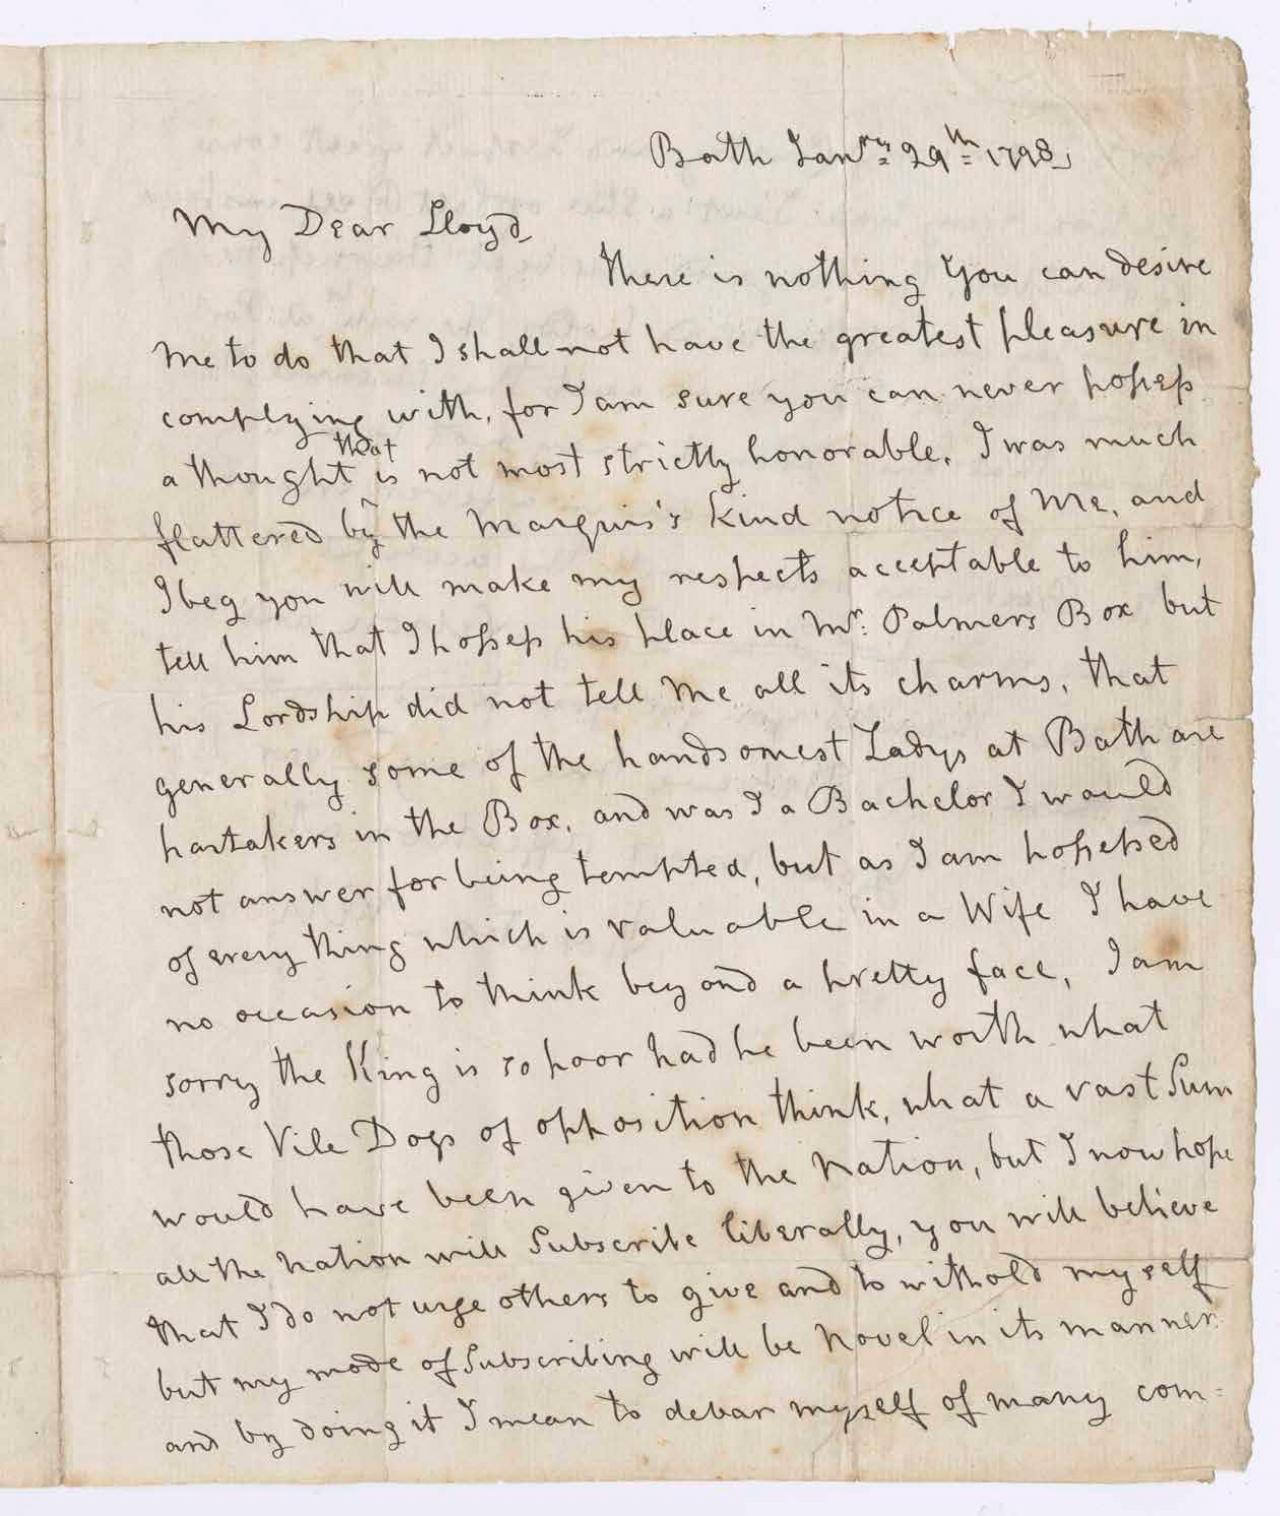 Bath Jan.ry 29th 1798
My Dear Lloyd
There is nothing You can desire
me to do that I shall not have the greatest pleasure in
complying with, for I am sure you can never possess
a thought that is not most strictly honorable. I was much
flattered by the Marquis's kind notice of Me, and
I beg you will make my respects acceptable to him,
tell him that I possess his place in Mr. Palmers Box but
his Lordship did not tell Me all its charms, that
generally some of the handsomest Ladys at Bath are
partakers in the Box, and was I a Bachelor I would
not answer for being tempted, but as I am possessed
of every thing which is valuable in a Wife I have
no occasion to think beyond a pretty face, I am
sorry the King is so poor had he been worth what
those Vile Dogs of opposition think, what a vast Sum
would have been given to the Nation, but I now hope
all the Nation will Subscribe liberally, you will believe
that I do not urge others to give and to withold myself
but my mode of Subscribing will be Novel in its manner
and by doing it I mean to debar myself of many com=